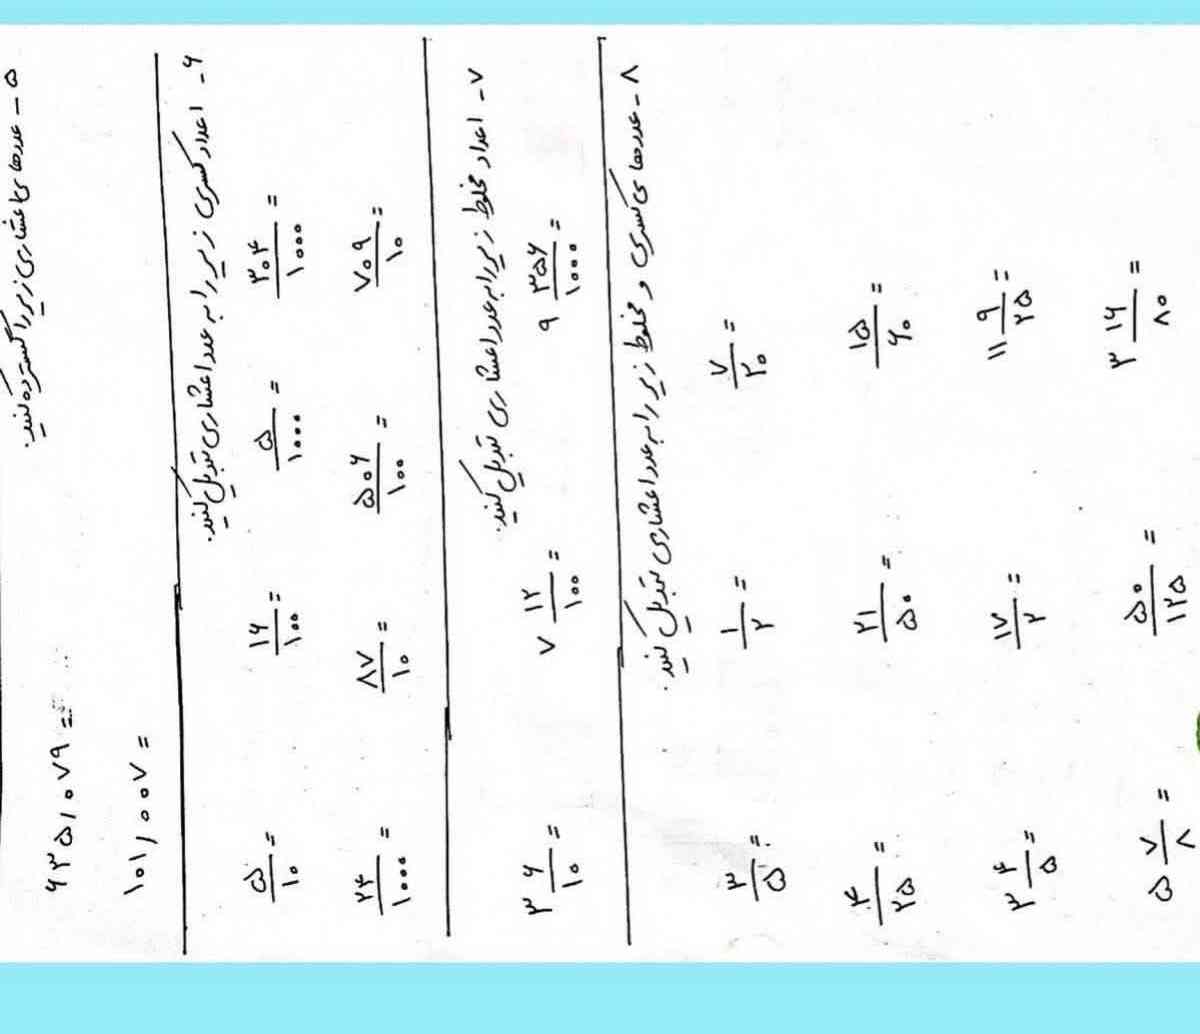 ۵ - عددهای اعشاری زیر را گسترده کنید.
۶۳۵/۰۷۹ =
۱۰۱/۰۰۷ =
۶ - اعداد کسری زیر را به عدد اعشاری تبدیل کنید.
۵/۱۰ = ۱۶/۱۰۰ = ۵/۱۰۰۰ = ۳۰۴/۱۰۰۰ =
۲۴/۱۰۰۰ = ۸۷/۱۰ = ۵۰۶/۱۰۰ = ۷۰۹/۱۰ =
۷ - اعداد مخلوط زیر را به عدد اعشاری تبدیل کنید.
۳ ۶/۱۰ = ۷ ۱۲/۱۰۰ = ۹ ۳۵۶/۱۰۰۰ =
۸ - عددهای کسری و مخلوط زیر را به عدد اعشاری تبدیل کنید.
۳/۵ = ۱/۲ = ۷/۲۰ =
۴/۲۵ = ۲۱/۵۰ = ۱۵/۶۰ =
۳ ۴/۵ = ۱۷/۲ = ۱۱ ۹/۲۵ =
۵ ۷/۸ = ۵۰/۱۲۵ = ۳ ۱۶/۸۰ =